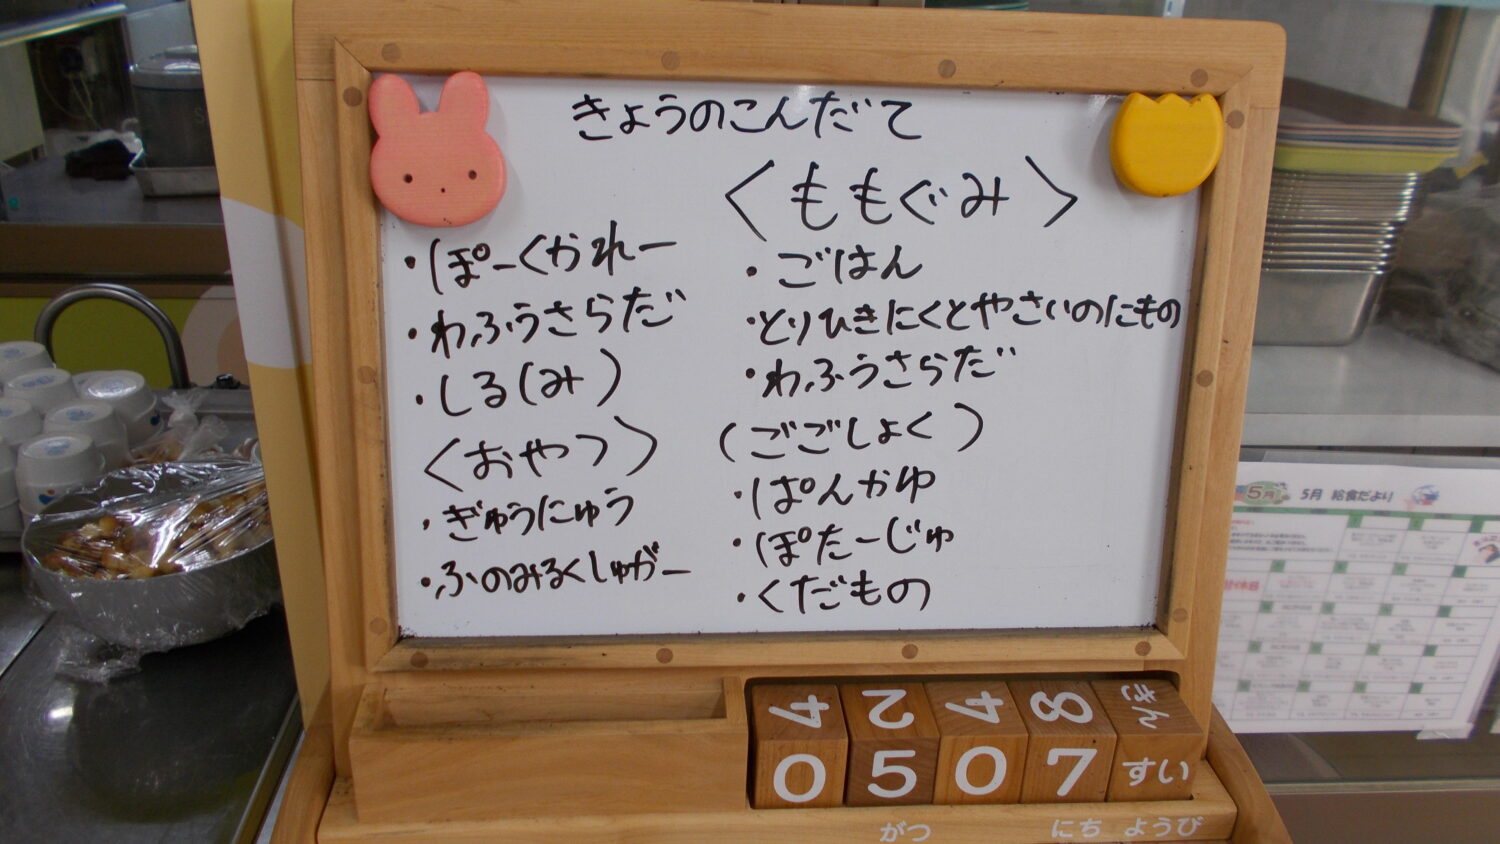 きょうのこんだて
・ぽーくかれー
・わふうさらだ
・しる(み)
〈おやつ〉
・ぎゅうにゅう
・ふのみるくしゅがー
〈ももぐみ〉
・ごはん
・とりひきにくとやさいのにもの
・わふうさらだ
(ごごしょく)
・ぱんかゆ
・ぽたーじゅ
・くだもの
4 2 4 8 きん
0 5 0 7 すい
がつ にち ようび
5月 5月 給食だより